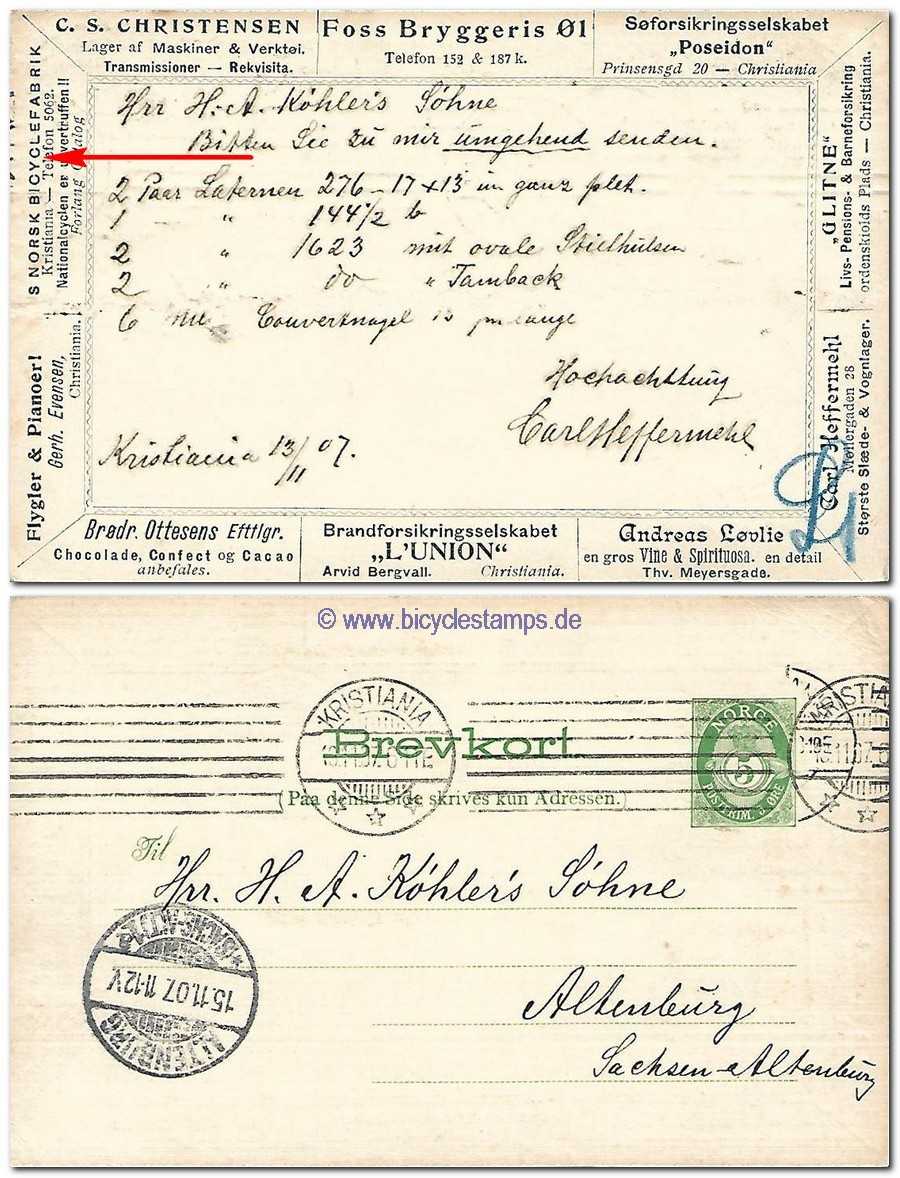 C. S. CHRISTENSEN
Lager af Maskiner & Verktøi.
Transmissioner — Rekvisita.
Foss Bryggeris Øl
Telefon 152 & 187 k.
Søforsikringsselskabet
„Poseidon"
Prinsensgd 20 — Christiania
S NORSK BICYCLEFABRIK
Kristiania — Telefon 5062.
Nationalcyclen er uovertruffen!!
Forlang Catalog
Flygler & Pianoer!
Gerh. Evensen,
Christiania.
Hrr H. A. Köhler's Söhne
Bitten Sie zu mir umgehend senden.
2 Paar Laternen 276 – 17 x 13 in ganz plet.
1 " 144/2 b
2 " 1623 mit ovale Stielhülsen
2 " do " Tamback
6 Couvertnagel 13
Hochachttung
Carl Heffermehl
Kristiania 13/11 07.
"GLITNE"
Livs- Pensions- & Barneforsikring
ordenskiolds Plads — Christiania.
Carl Heffermehl
Møllergaden 28
Største Slæde- & Vognlager.
Brødr. Ottesens Efttlgr.
Chocolade, Confect og Cacao
anbefales.
Brandforsikringsselskabet
„L'UNION"
Arvid Bergvall. Christiania.
Andreas Løvlie
en gros Vine & Spirituosa. en detail
Thv. Meyersgade.
© www.bicyclestamps.de
KRISTIANIA
13.11.07.
Brevkort
(Paa denne Side skrives kun Adressen.)
NORGE
5
POSTFRIM. 5 ØRE
KRISTIANIA
13.11.07.
Til
Hrr. H. A. Köhler's Söhne
Altenburg
Sachsen-Altenburg
ALTENBURG
15.11.07. 11-12V
*(SACHS.-ALT.)1e